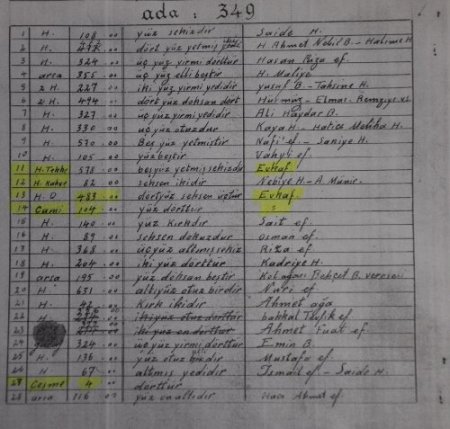 ada : 349
1 H. 108 .00 yüz sekizdir Saide H.
2 H. .00 dört yüz yetmiş H. Ahmet Nebil B. - Halime H.
3 H. 324 .00 üç yüz yirmi dörttür Hasan Rıza ef.
4 arsa 355 .00 üç yüz elli beştir H. Maliye
5 2 H. 227 .00 iki yüz yirmi yedidir Yusuf B - Tahsine H.
6 2 H. 494 .00 dört yüz doksan dört Hürmüz - Elmas - Remziye
7 H. 327 .00 üç yüz yirmi yedidir Ali Haydar B.
8 H. 330 .00 üç yüz otuzdur Kaya H - Hatice Meliha H.
9 H. 570 .00 Beş yüz yetmiştir Nafi ef - Saniye H.
10 H. 105 .00 yüz beştir Vahyli ef.
11 H. Tekke 578 .00 beşyüz yetmiş sekizdir Evkaf
12 H. 82 .00 seksen ikidir Nebiye H - A. Münir.
13 H. D 483 .00 dörtyüz seksen üçtür Evkaf.
14 Cami 104 .00 yüz dörttür "
15 H. 140 .00 yüz kırkdır Sait ef.
16 H. 89 .00 seksen dokuzdur Osman ef.
17 H. 368 .00 üçyüz altmış sekiz Rıza ef.
18 H. 204 .00 iki yüz dörttür Kadriye H.
19 arsa 195 .00 yüz doksan beştir Kolağası Behçet B. veresesi
20 H. 631 .00 altıyüz otuz birdir Nuri ef.
21 H. 42 .00 Kırk ikidir Ahmet ağa
22 H. .00 iki yüz otuz dörttür bakkal Tevfik ef.
23 .00 iki yüz on dörttür Ahmet Fuat ef.
24 324 .00 üç yüz yirmi dörttür Emin B.
25 H. 136 .00 yüz otuz Mustafa ef.
26 H 67 .00 altmış yedidir İsmail ef - Saide H.
27 Çeşme 4 .00 dörttür
28 arsa 116 .00 yüz on altıdır Hacı Ahmet ef.